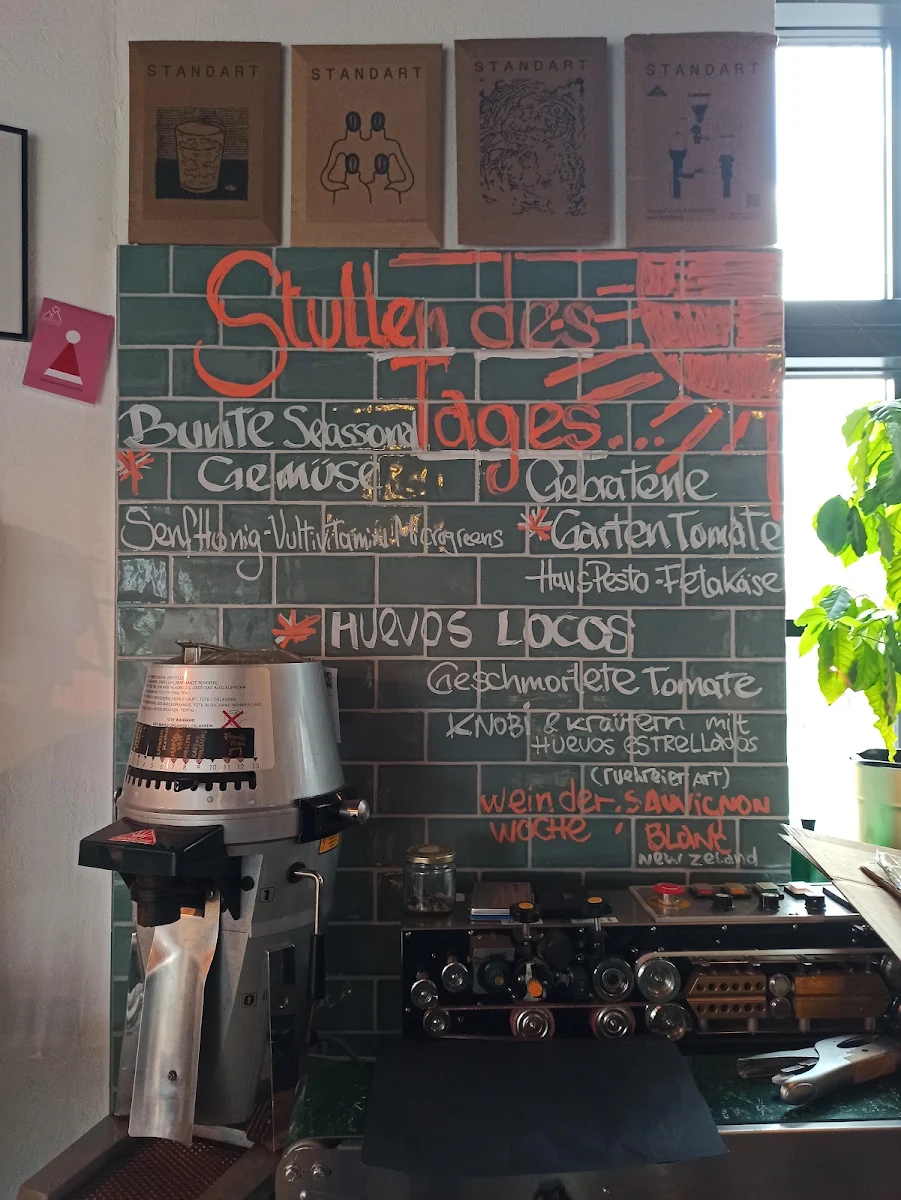 STANDART
STANDART
STANDART
STANDART
Stullen des
Tages...
Bunte Seassonal
Gemüse
Senf Honig-Vultivitamin Microgreens
Gebratene
Garten Tomate
HausPesto-Fetakäse
HUEVOS LOCOS
Geschmortete Tomate
KNOBi & kräutern mit
HUEVOS ESTRELLADOS
(ruehreier ART)
wein der
woche
SAUVIGNON
BLANC
NEW ZELAND
1 2 3 4 5 6 7 8 9 10 11 12 13
1
0